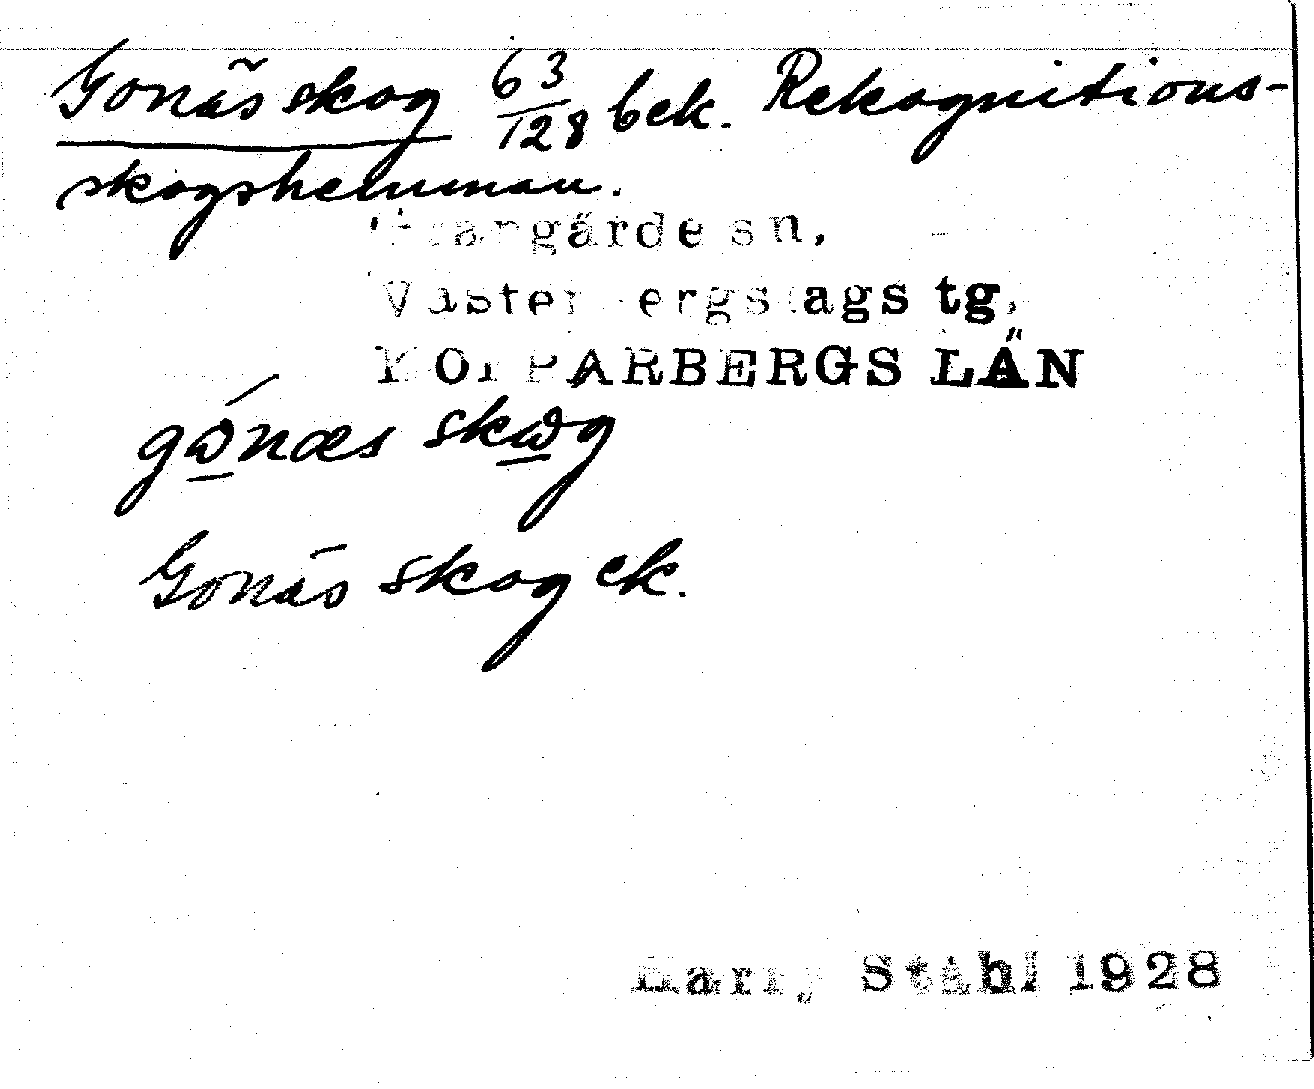 Gonäs skog 63/128 bek. Rekognitions-
skogshemman.
Grangärde sn,
Västerbergslags tg,
KOPPARBERGS LÄN
gώnæs skωg
Gonäs skog ek.
Harry Ståhl 1928